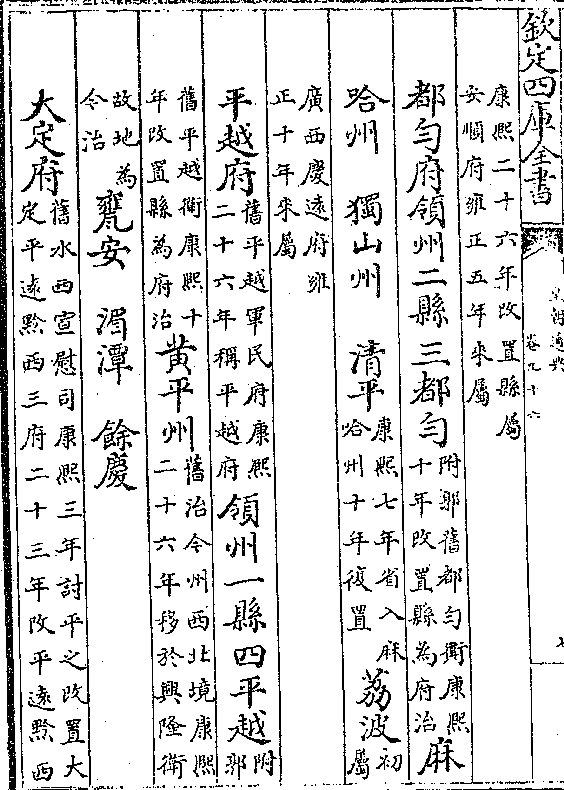 欽定四庫全書
皇朝通典
卷九十六
七
康熙二十六年改置縣屬安順府雍正五年來屬
都勻府領州二縣三都勻附郭舊都勻衛康熙十年改置縣為府治麻
哈州 獨山州 清平康熙七年省入麻哈州十年復置荔波初屬
廣西慶遠府雍正十年來屬
平越府舊平越軍民府康熙二十六年稱平越府領州一縣四平越附郭
舊平越衛康熙十年改置縣為府治黃平州舊治今州西北境康熙二十六年移於興隆衛
故地為今治甕安 湄潭 餘慶
大定府舊水西宣慰司康熙三年討平之改置大定平遠黔西三府二十三年改平遠黔西